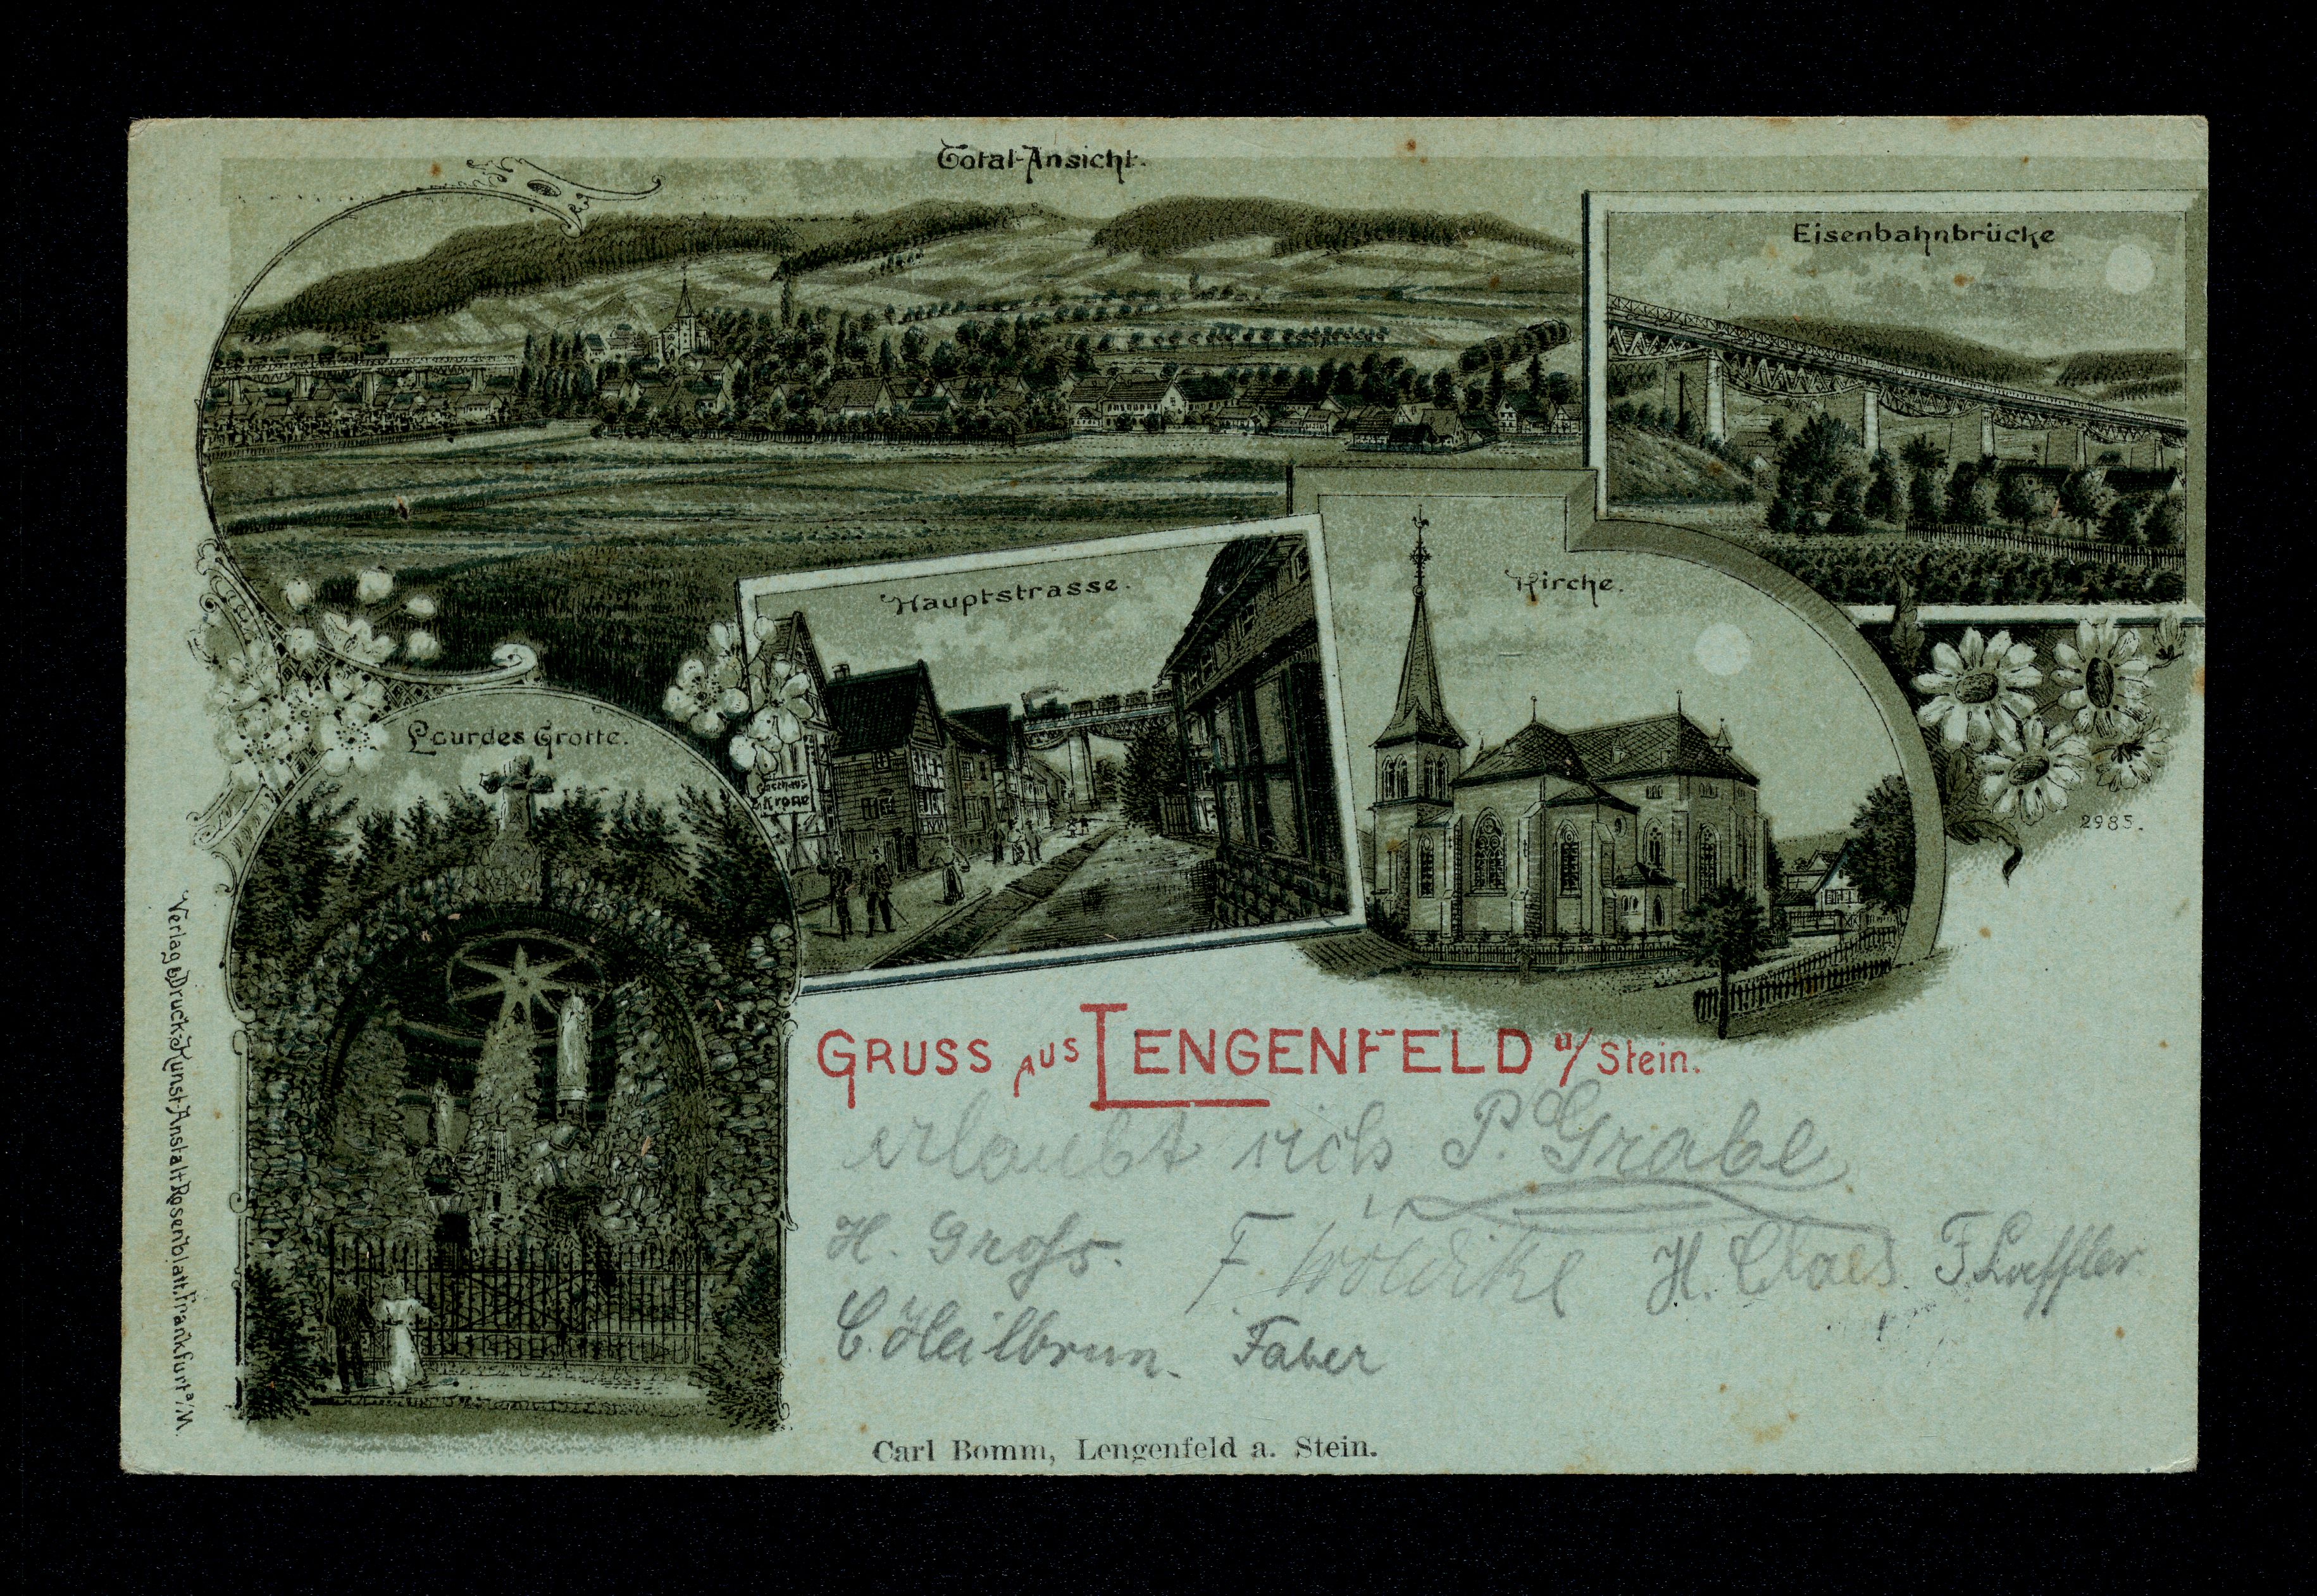 Total-Ansicht.
Eisenbahnbrücke
Hauptstrasse.
Kirche.
Lourdes Grotte.
Gasthaus
z. Krone
2985.
GRUSS AUS LENGENFELD u/Stein.
erlaubt sich P. Grabe
H. Groſs. F. Wöldike H. Claes. F. Loeffler
C. Heilbrun. Faber
Carl Bomm, Lengenfeld a. Stein.
Verlag & Druck: Kunst-Anstalt Rosenblatt, Frankfurt a/M.